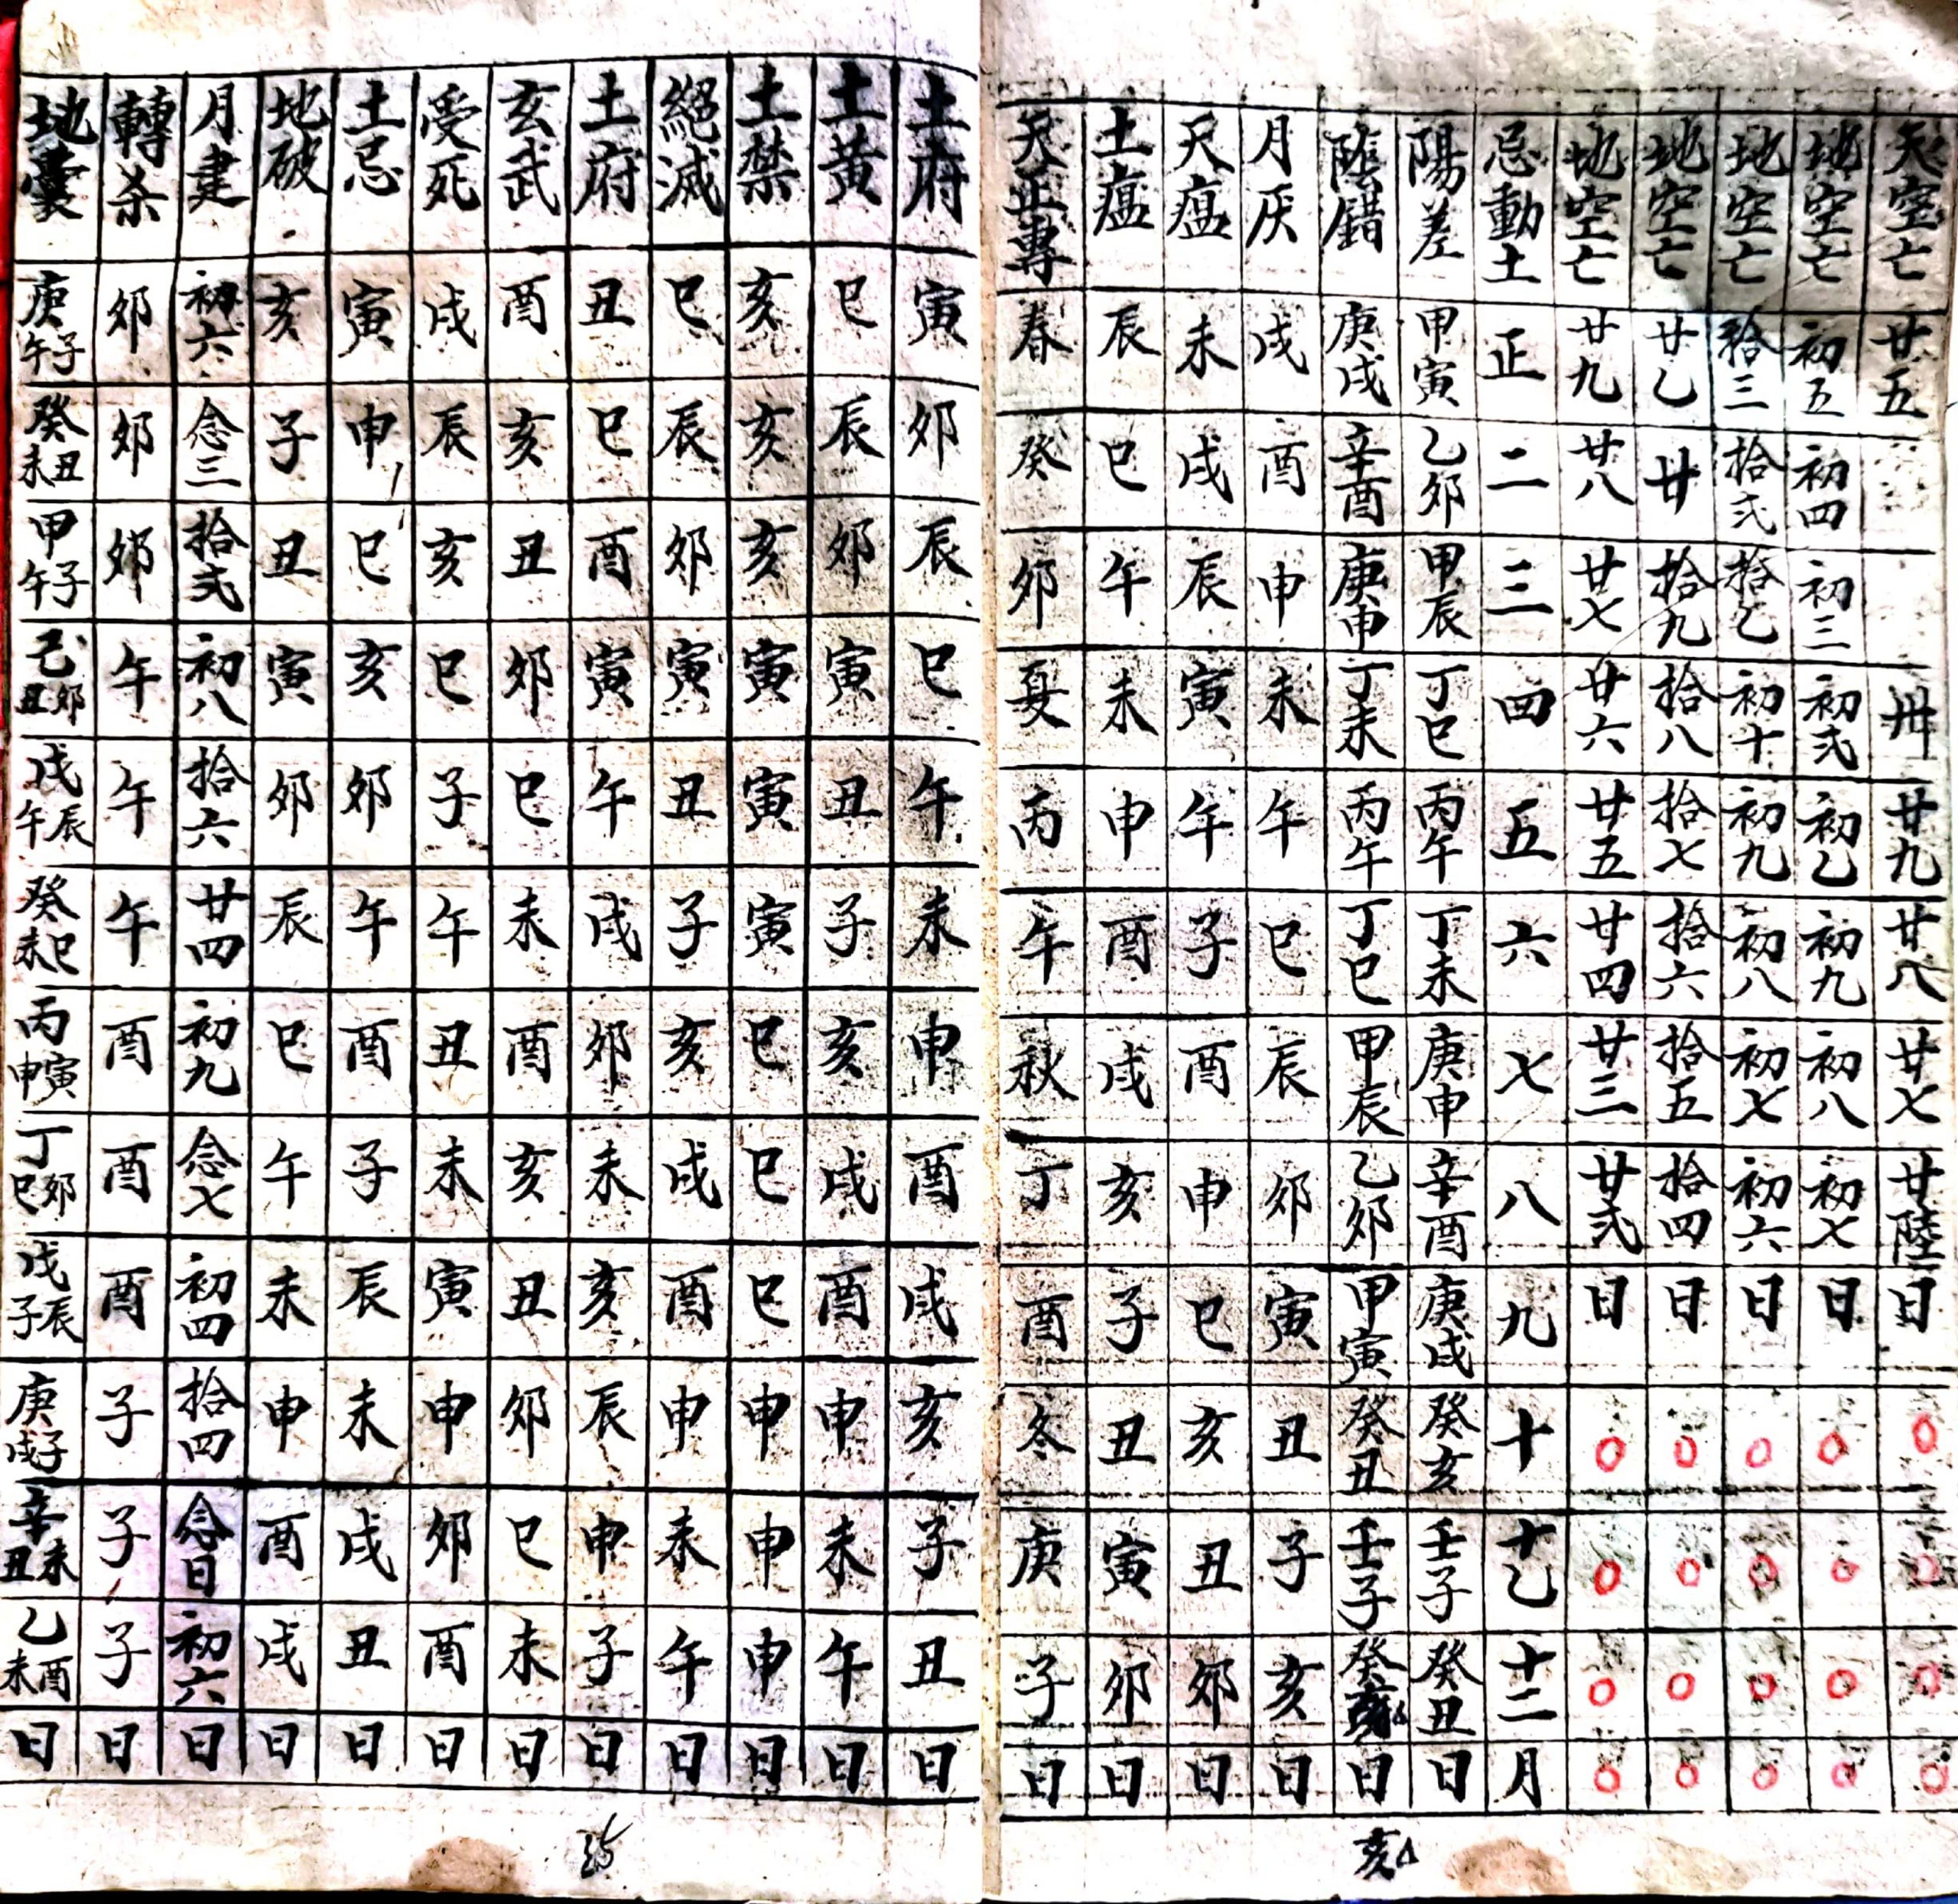 天空亡 廿五 卅 廿九 廿八 廿七 廿陸 日
地空亡 初五 初四 初三 初弍 初乙 初九 初八 初七 日
地空亡 拾三 拾弍 拾乙 初十 初九 初八 初七 初六 日
地空亡 廿乙 廿 拾九 拾八 拾七 拾六 拾五 拾四 日
地空亡 廿九 廿八 廿七 廿六 廿五 廿四 廿三 廿弍 日
忌動土 正 二 三 四 五 六 七 八 九 十 十乙 十二 月
陽差 甲寅 乙卯 甲辰 丁巳 丙午 丁未 庚申 辛酉 庚戌 癸亥 壬子 癸丑 日
陰錯 庚戌 辛酉 庚申 丁未 丙午 丁巳 甲辰 乙卯 甲寅 癸丑 壬子 癸 日
月厌 戌 酉 申 未 午 巳 辰 卯 寅 丑 子 亥 日
天瘟 未 戌 辰 寅 午 子 酉 申 巳 亥 丑 卯 日
土瘟 辰 巳 午 未 申 酉 戌 亥 子 丑 寅 卯 日
天正專 春 癸 卯 夏 丙 午 秋 丁 酉 冬 庚 子 日
亥
土府 寅 卯 辰 巳 午 未 申 酉 戌 亥 子 丑 日
土黄 巳 辰 卯 寅 丑 子 亥 戌 酉 申 未 午 日
土禁 亥 亥 亥 寅 寅 寅 巳 巳 巳 申 申 申 日
絕滅 巳 辰 卯 寅 丑 子 亥 戌 酉 申 未 午 日
土府 丑 巳 酉 寅 午 戌 卯 未 亥 辰 申 子 日
玄武 酉 亥 丑 卯 巳 未 酉 亥 丑 卯 巳 未 日
受死 戌 辰 亥 巳 子 午 丑 未 寅 申 卯 酉 日
土忌 寅 申 巳 亥 卯 午 酉 子 辰 未 戌 丑 日
地破 亥 子 丑 寅 卯 辰 巳 午 未 申 酉 戌 日
月建 初六 念三 拾弍 初八 拾六 廿四 初九 念七 初四 拾四 念日 初六 日
轉杀 卯 卯 卯 午 午 午 酉 酉 酉 子 子 子 日
地囊 庚子午 癸丑未 甲子午 己卯丑 戊辰午 癸巳未 丙寅申 丁卯巳 戊辰子 庚子戌 辛未丑 乙酉未 日